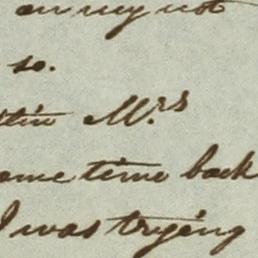 my not
so.
Mrs
ome time back
I was trying